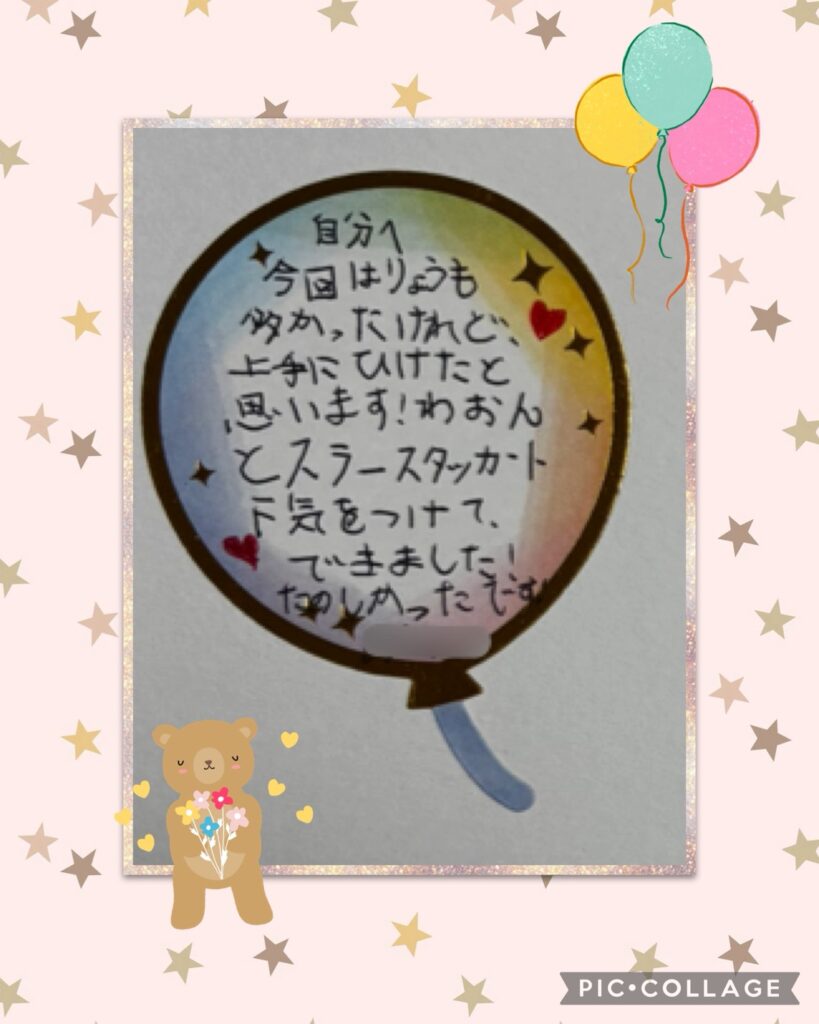 自分へ
今回はりょうも
多かったけれど、
上手にひけたと
思います!わおん
とスラースタッカート
下気をつけて、
できました!
たのしかったでーす!
PIC•COLLAGE